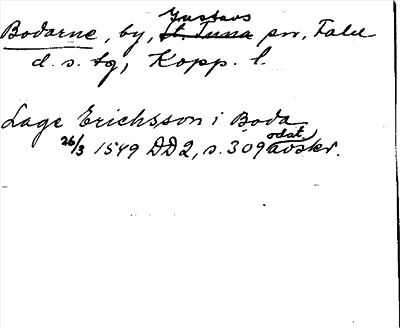 Gustavs
Bodarne, by, St. Tuna sn, Falu
d. s. tg, Kopp. l.
Lage Erichsson i Boda
odat.
26/3 1549 DD2, s. 309 avskr.